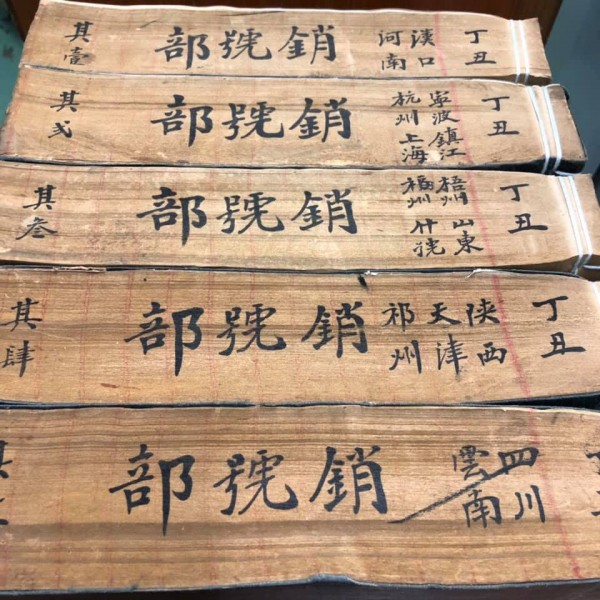 丁丑
漢口
河南
銷號部
其壹
丁丑
寧波鎮江
杭州上海
銷號部
其弍
丁丑
梧州山東
福州什號
銷號部
其叁
丁丑
陕西
天津
祁州
銷號部
其肆
四川
雲南
銷號部